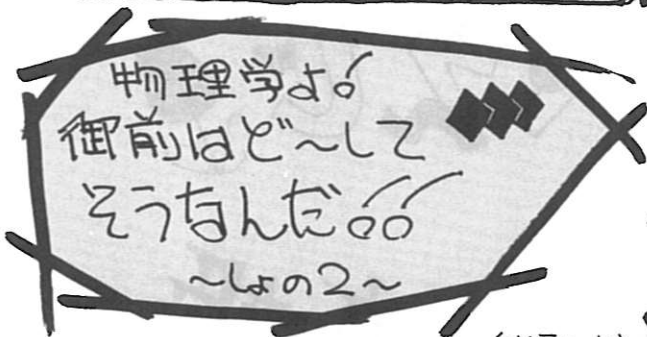 物理学よ!
御前はど〜して
そうなんだ!!
〜しょの2〜